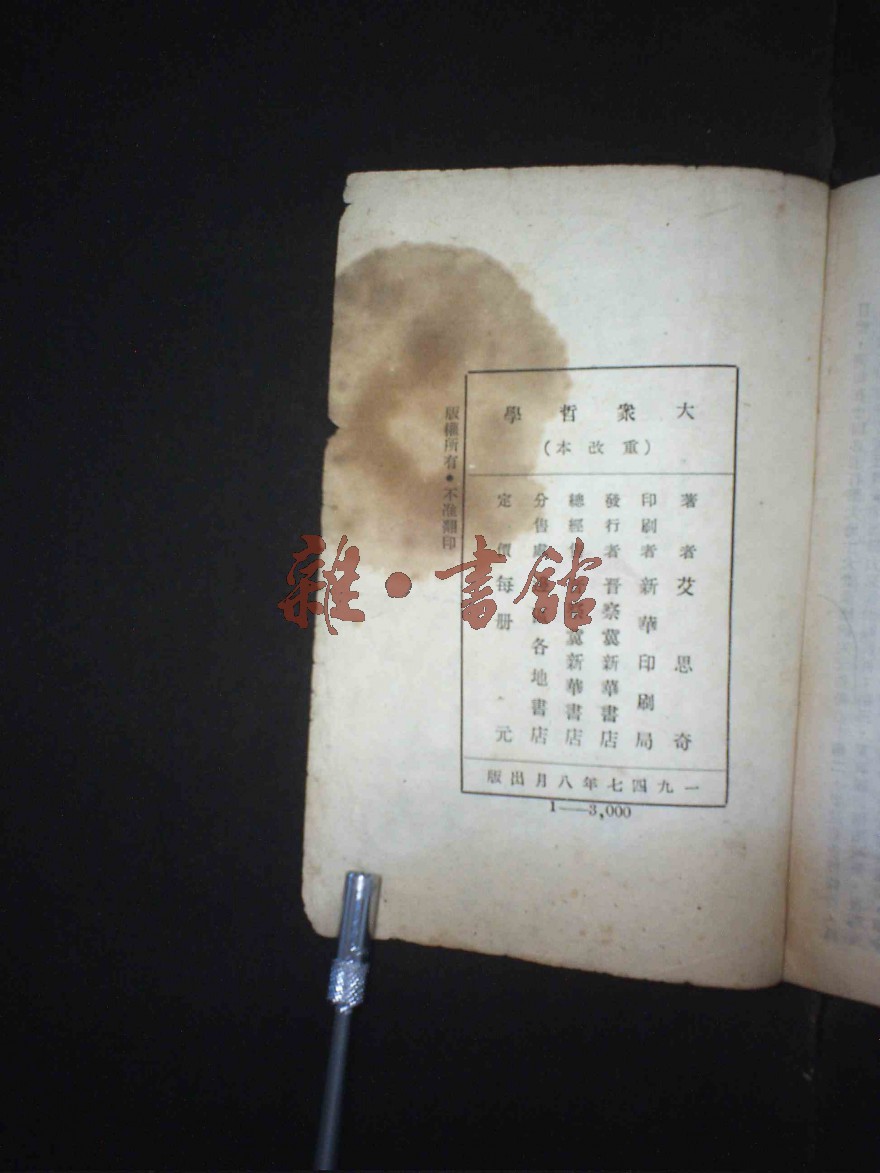 大眾哲學
(重改本)
著者 艾思奇
印刷者 新華印刷局
發行者 晋察冀新華書店
總經售 晋察冀新華書店
分售處 各地書店
定價 每册 元
一九四七年八月出版
1——3,000
版權所有•不准翻印
雜•書館